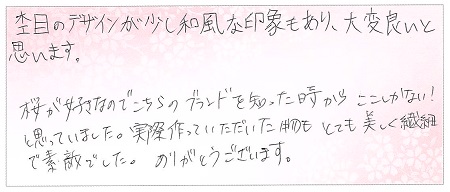 杢目のデザインが少し和風な印象もあり、大変良いと
思います。
桜が好きなのでこちらのブランドを知った時からここしかない!
と思っていました。実際作っていただいた物もとても美しく繊細
で素敵でした。ありがとうございます。